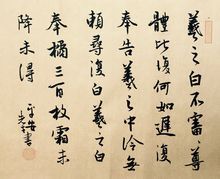 羲之白不審尊
體比復何如遲復
奉告羲之中冷無
賴尋復白羲之白
奉橘三百枚霜未
降未得
平安
書